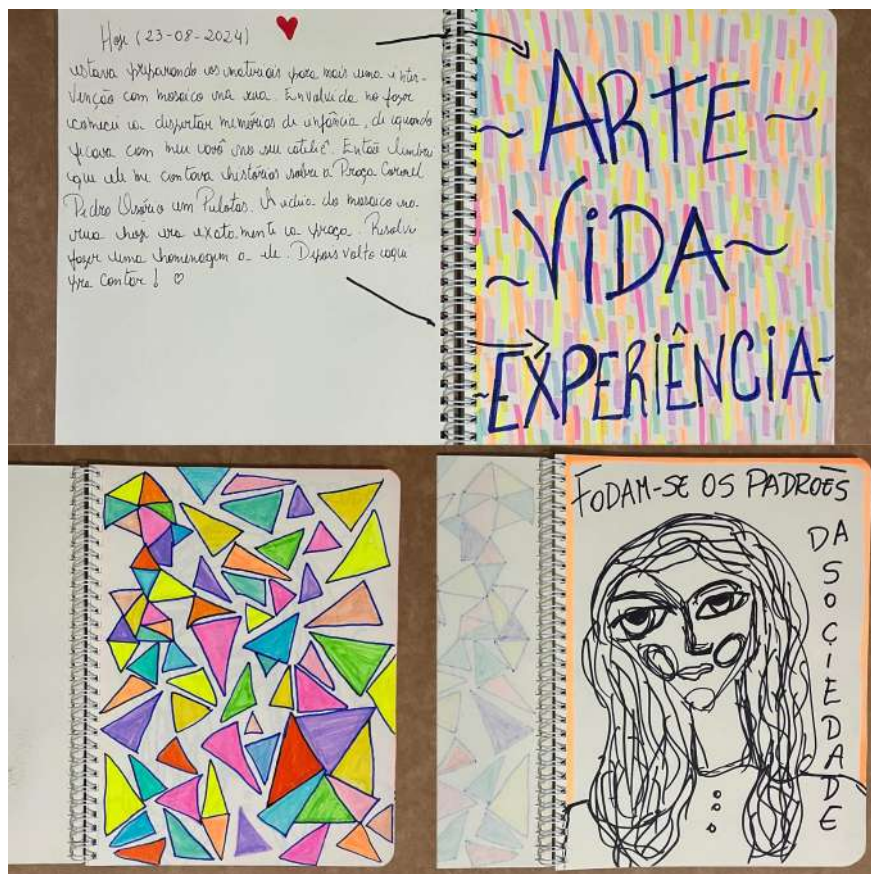 Hoje (23-08-2024)
estava preparando os materiais para mais uma inter-
venção com mosaico na rua. Envolvida no fazer
comecei a despertar memórias de infância, de quando
ficava com meu vovô no seu ateliê. Então lembrei
que ele me contava histórias sobre a Praça Coronel
Pedro Osório em Pelotas. A ideia do mosaico na
rua hoje era exatamente a praça. Resolvi
fazer uma homenagem a ele. Depois volto aqui
pra contar!
~ARTE~
~VIDA~
~EXPERIÊNCIA~
FODAM-SE OS PADRÕES
DA
SOCIEDADE